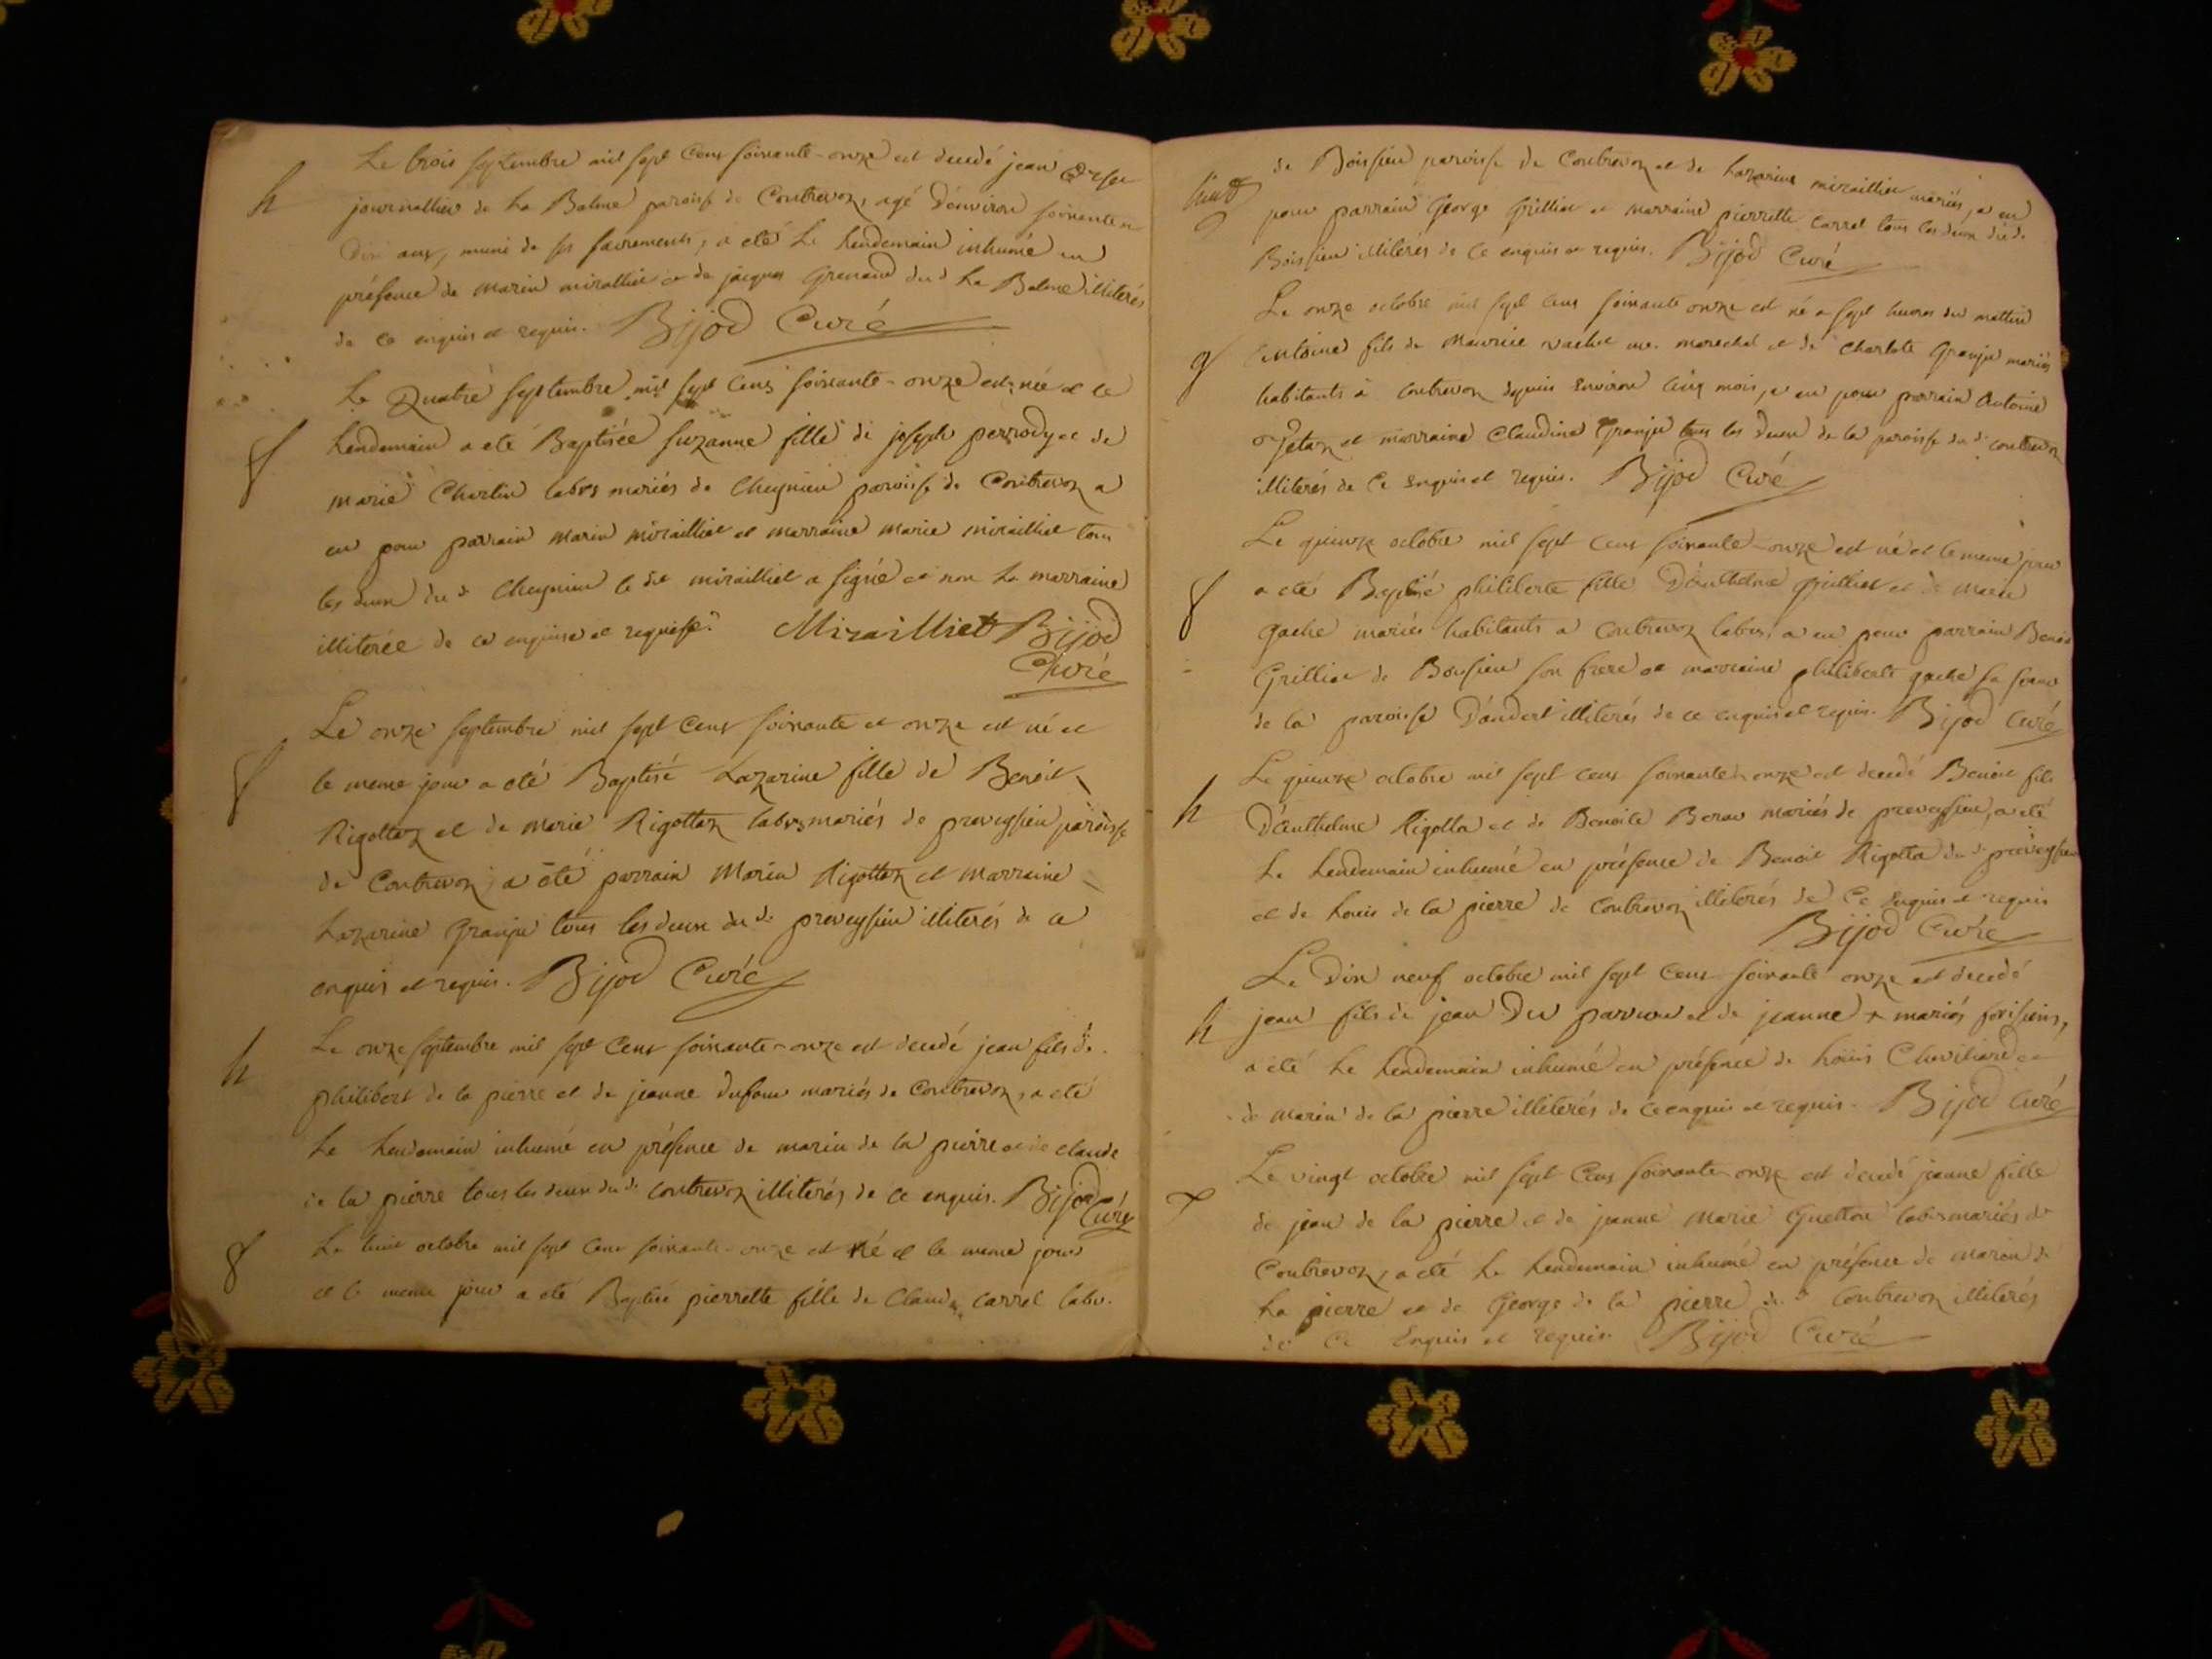 Le trois septembre mil sept cens soixante-onze est decedé jean
h
journallier de La Balme paroisse de Contrevoz, agé D'environ soixante et
Dix ans, muni de ses sacrements, a eté Le Lendemain inhumé en
présence de marin miraillet et de jacques Grenand dud La Balme illiterés
de ce enquis et requis. Bijod Curé
Le Quatre septembre mil sept cens soixante-onze est née et le
f
Lendemain a eté Baptisée suzanne fille de joseph perrody et de
marie Chertin labrs mariés de Cheynieu paroisse de Contrevoz a
eu pour parrain marin miraillet et marraine marie miraillet tous
les deux dud Cheynieu le dit miraillet a signé et non La marraine
illiterée de ce enquise et requise. Miraillliet Bijod
Curé
Le onze septembre mil sept cens soixante et onze est né et
f
le meme jour a eté Baptisé Lazarine fille de Benoit
Rigottaz et de marie Rigottaz labrs mariés de preveyssieu paroisse
de Contrevoz, a été parrain Marin Rigottaz et marraine
Lazarine Granju tous les deux dud preveyssieu illiterés de ce
enquis et requis. Bijod Curé
Le onze septembre mil sept cens soixante-onze est decedé jean fils de
h
philibert de la pierre et de jeanne Dufour mariés de Contrevoz, a eté
Le Lendemain inhumé en présence de marin de la pierre et de claude
de la pierre tous les deux dud contrevoz illiterés de ce enquis. Bijod
Curé
f
Le huit octobre mil sept cens soixante-onze est né et le meme jour
et le meme jour a eté Baptisé pierrette fille de Claude carrel labr.
de Boissieu paroisse de Contrevoz et de Lazarine miraillet mariés, a eu
pour parrain George Grilliet et marraine pierrette carrel tous les deux dud
Boissieu illiterés de ce enquis et requis. Bijod Curé
Le onze octobre mil sept cens soixante onze est né a sept heures du mattin
g
Antoine fils de Maurice vachet me. marechal et de charlote Granju mariés
habitants a contrevoz depuis environ cinq mois, a eu pour parrain Antoine
et marraine Claudine Granju tous les deux de la paroisse dud contrevoz
illiterés de Ce enquis et requis. Bijod Curé
Le quinze octobre mil sept cens soixante-onze est né et le meme jour
f
a eté Baptisé philiberte fille D'anthelme grilliet et de marie
gache mariés habitants a contrevoz labrs, a eu pour parrain Benoit
Grilliet de Boissieu son frere et marraine philiberte gache sa soeur
de la paroisse D'andert illiterés de ce enquis et requis. Bijod Curé
Le quinze octobre mil sept cens soixante-onze est decedé Benoit fils
h
D'anthelme Rigotta et de Benoite mariés de preveyssieu, a eté
Le Lendemain inhumé en présence de Benoit Rigotta dud preveyssieu
et de Louis de la pierre de contrevoz illiterés de Ce enquis et requis
Bijod Curé
Le Dix neuf octobre mil sept cens soixante onze est decedé
h
jean fils de jean Du et de jeanne + mariés
a eté Le Lendemain inhumé en présence de Loüis et
de marin de la pierre illiterés de ce enquis et requis. Bijod Curé
Le vingt octobre mil sept cens soixante-onze est decedé jeanne fille
de jean de la pierre et de jeanne marie Guetton labrs mariés de
Contrevoz, a eté Le Lendemain inhumé en présence de marin de
La pierre et de George de la pierre de contrevoz illiterés
de Ce Enquis et requis. Bijod Curé